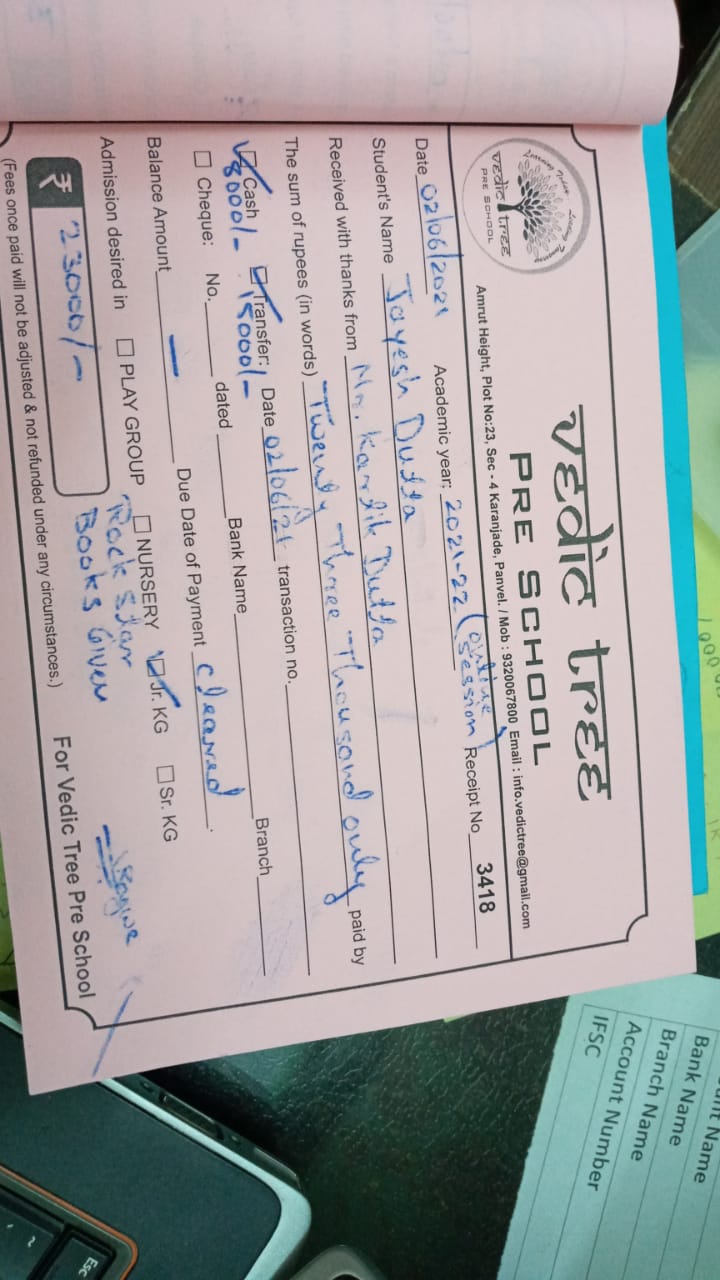 vedic tree
PRE SCHOOL
Learning Today Leading Tomorrow
vedic tree
PRE SCHOOL
Amrut Height, Plot No:23, Sec - 4 Karanjade, Panvel. / Mob : 9320067800 Email : info.vedictree@gmail.com
Date 02/06/2021 Academic year: 2021-22 (online session) Receipt No 3418
Student's Name Jayesh Dutta
Received with thanks from Mr. Kardik Dutta
The sum of rupees (in words) Twenty Three Thousand only paid by
Cash 8000/- Transfer: 15000/- Date 02/06/21 transaction no.
Cheque: No. dated Bank Name Branch
Balance Amount — Due Date of Payment cleared
Admission desired in PLAY GROUP NURSERY Jr. KG Sr. KG
₹ 23000/- Rock star
Books Given
(Fees once paid will not be adjusted & not refunded under any circumstances.) For Vedic Tree Pre School
Name
Bank Name
Branch Name
Account Number
IFSC
Esc